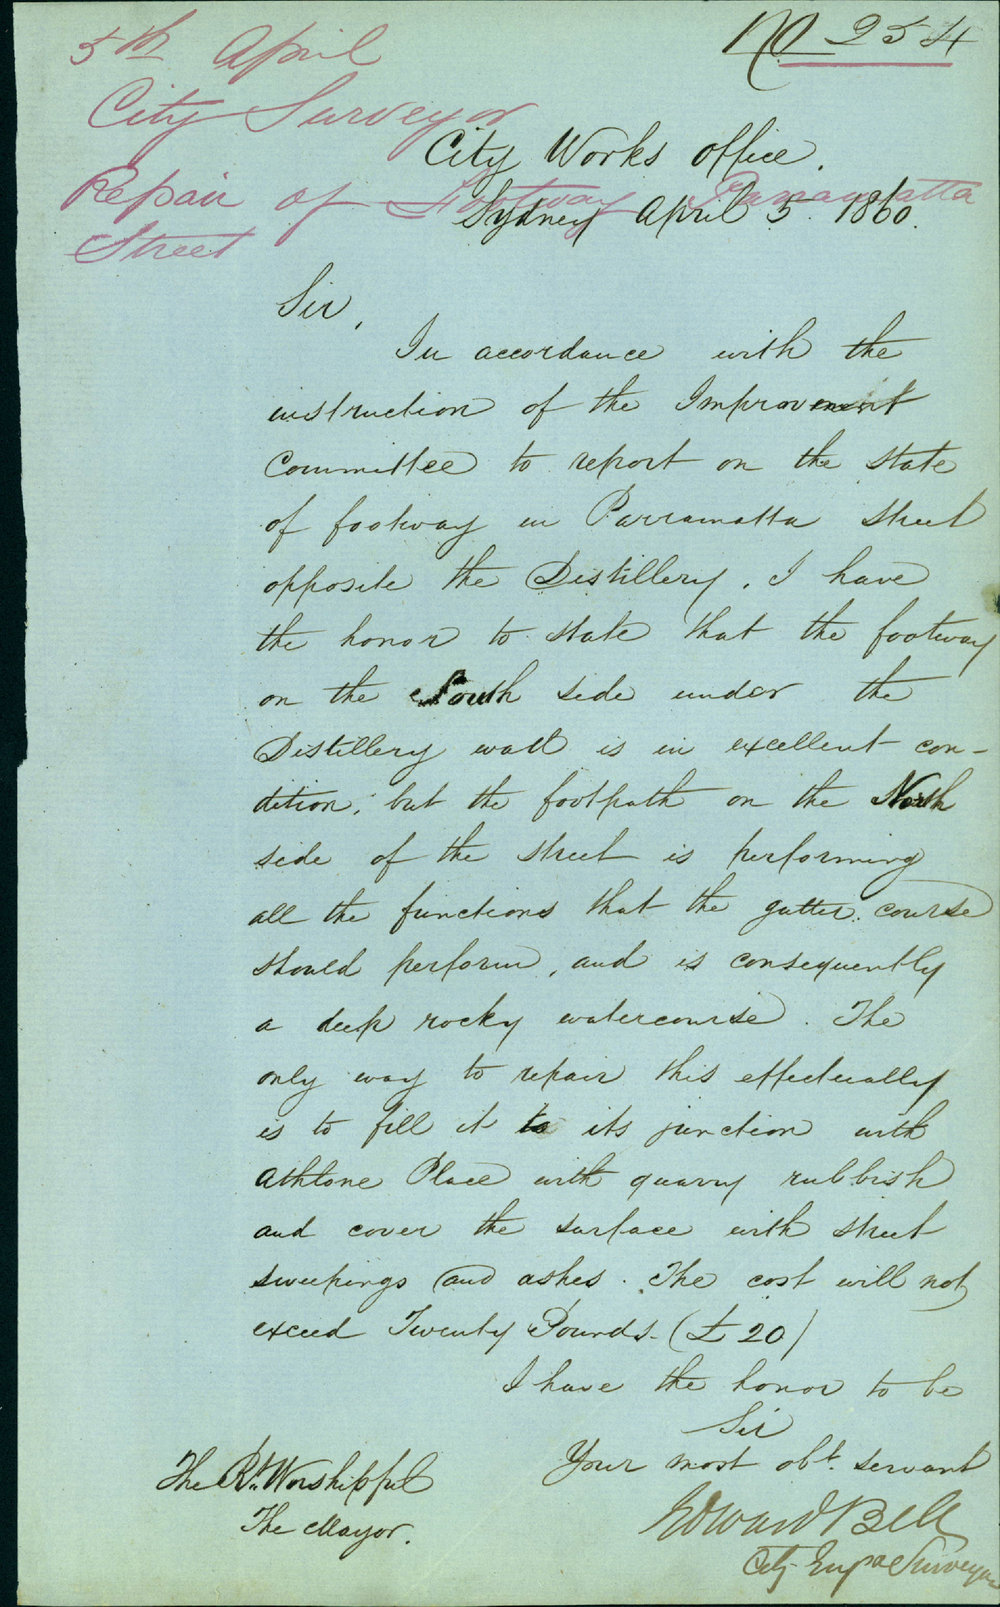 No 254
5th April
City Surveyor
Repair of Footway Parramatta
Street
City Works Office.
Sydney April 5. 1860.
Sir,
In accordance with the
instruction of the Improvement
Committee to report on the state
of footway in Parramatta Street
opposite the Distillery, I have
the honor to state that the footway
on the South side under the
Distillery wall is in excellent con-
dition; but the footpath on the North
side of the street is performing
all the functions that the gutter course
should perform, and is consequently
a deep rocky watercourse. The
only way to repair this effectually
is to fill it to its junction with
Athlone Place with quarry rubbish
and cover the surface with street
sweepings and ashes. The cost will not
exceed Twenty Pounds. (£20)
I have the honor to be
Sir
Your most obt. servant
Edward Bell
City Engr & Surveyor
The Rt. Worshipful
The Mayor.